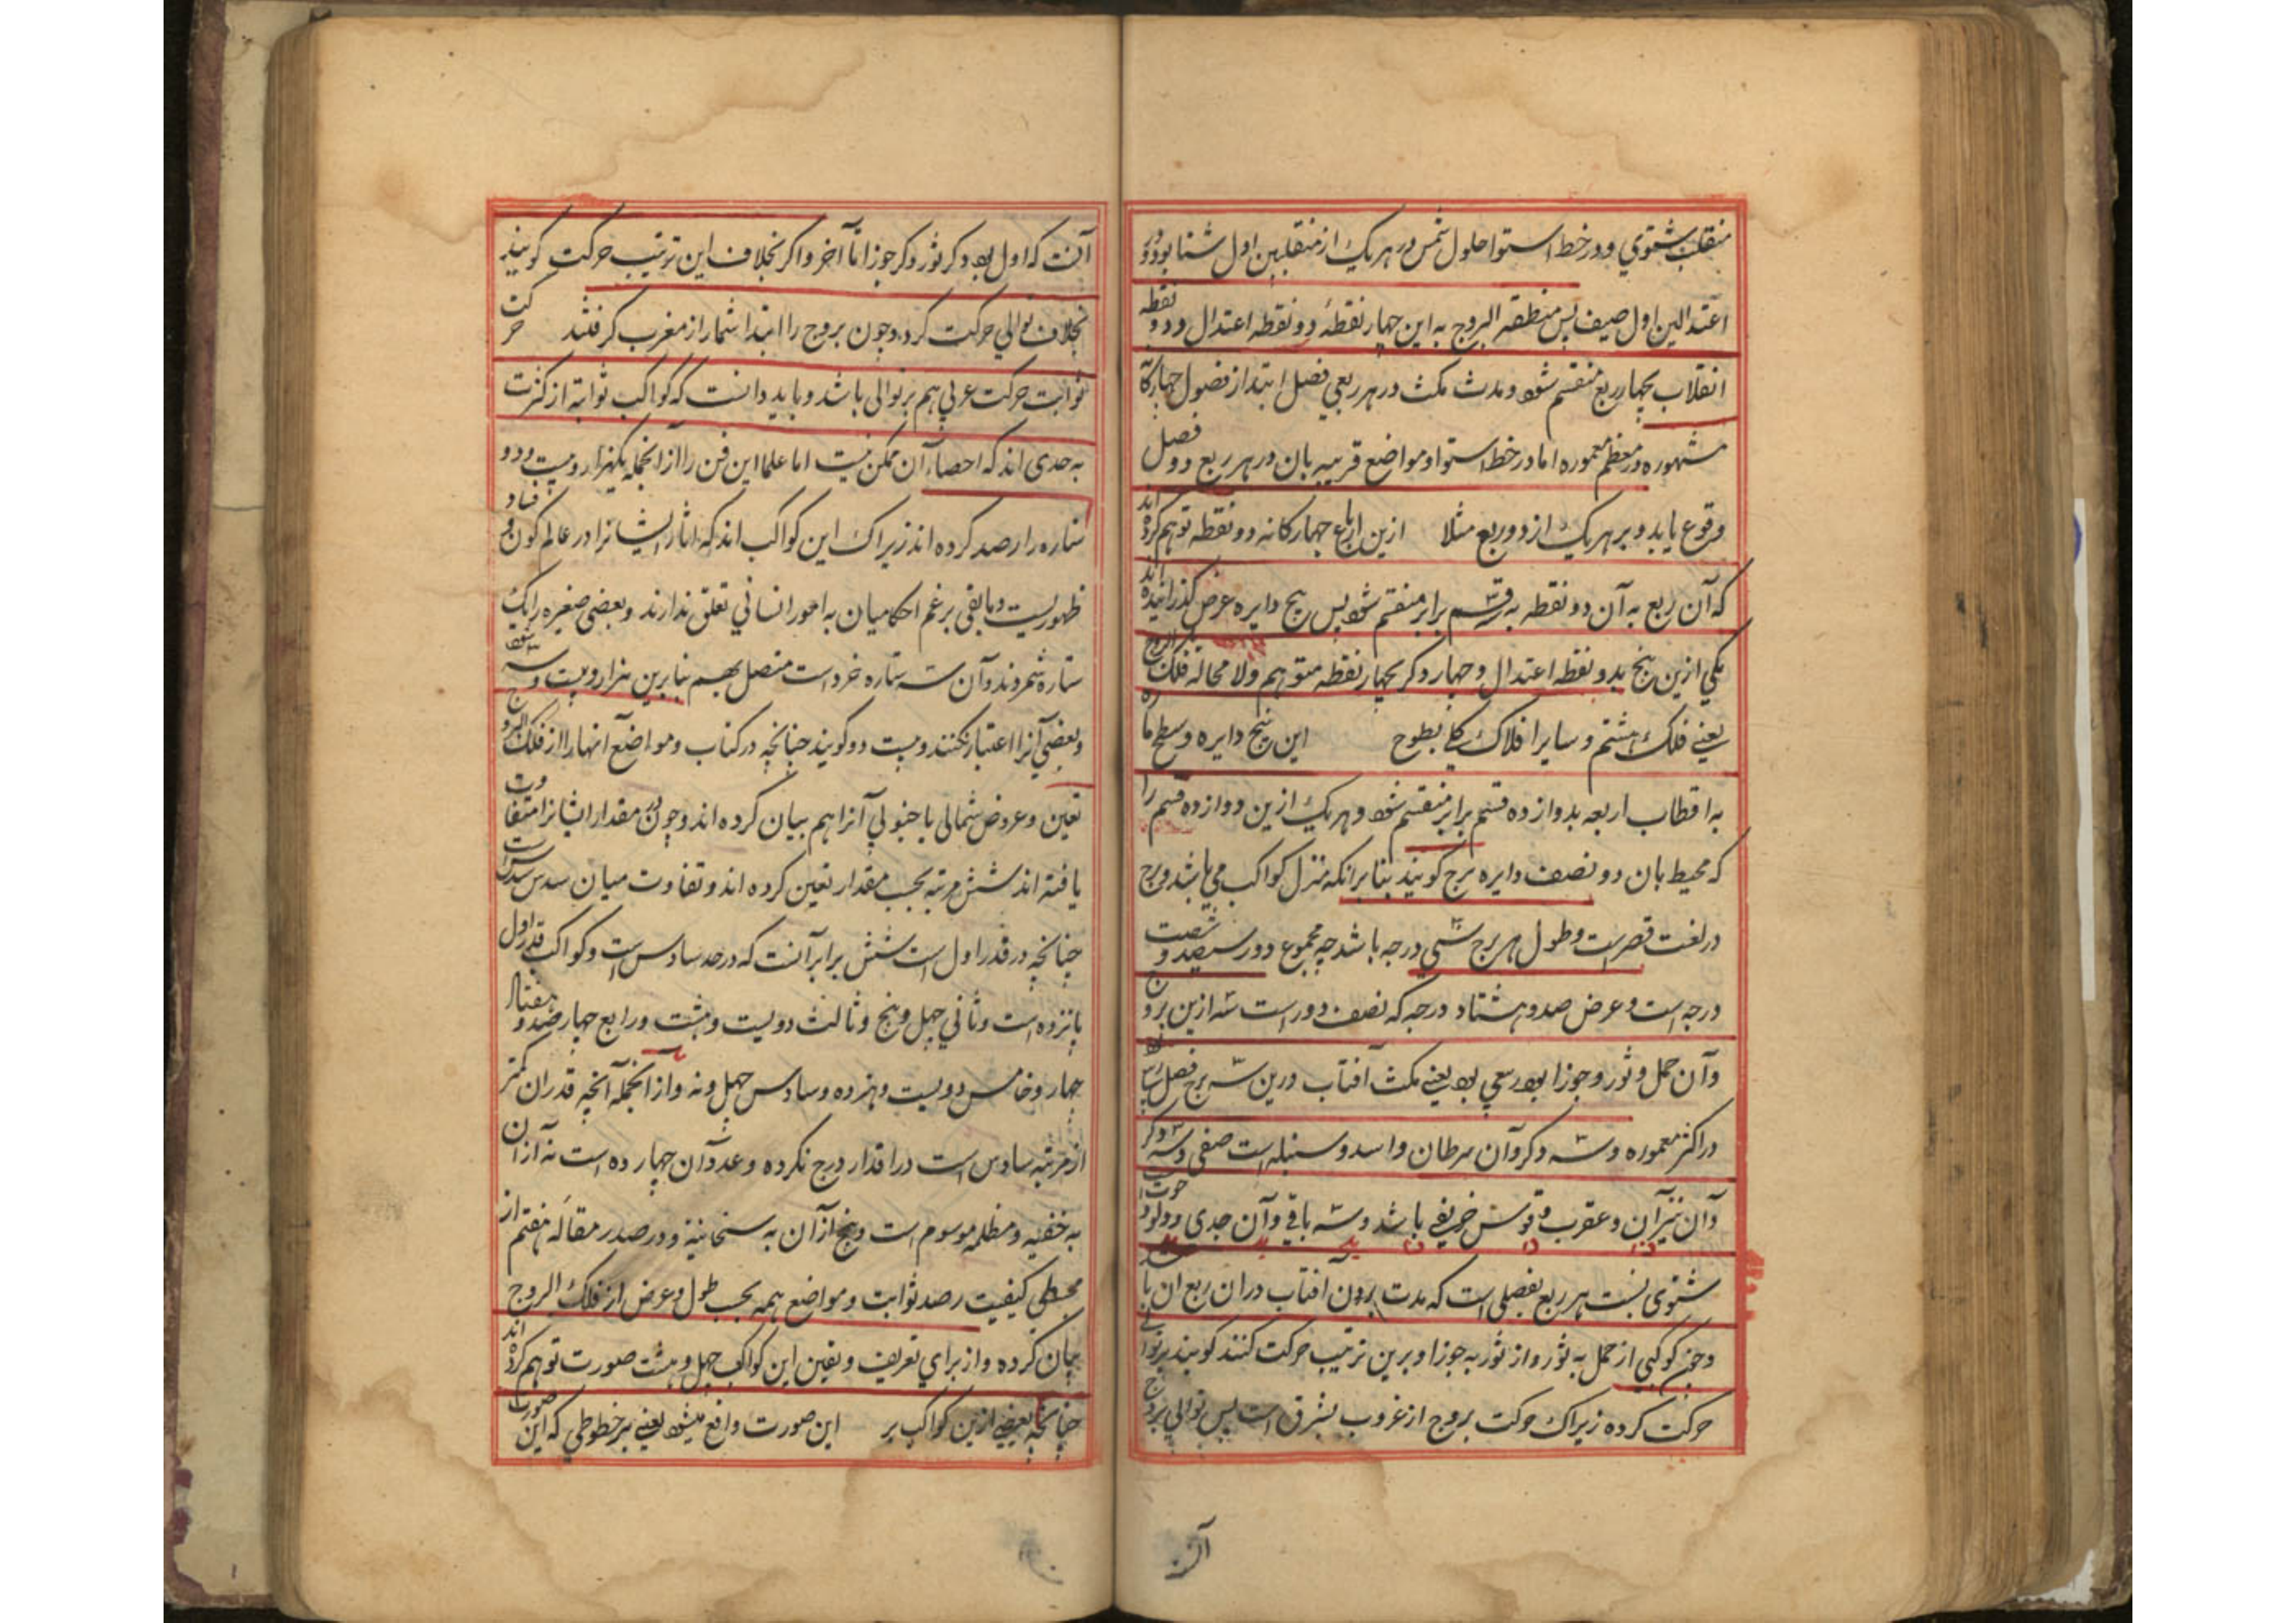 منقلب شتوي و در خط استوا حلول شمس در هر یک از منقلبین اول شتا بود و در
اعتدالین اول صیف پس منطقه البروج به این چهار نقطهٔ دو نقطه اعتدال و دو نقطه
انقلاب بچهار ربع منقسم شود و مدت مکث در هر ربعی فصل ابتدا از فصول چهارکا
مشهوره در معظم معموره اما در خط استوا و مواضع قریبه بان در هر ربع دو فصل
وقوع یابد و بر هر یک از دو ربع مثلا ازین ارباع چهارکانه دو نقطه توهم کرده اند
که آن ربع به آن دو نقطه به سه قسم برابر منقسم شود پس پنج دایره عرض کذرانیده اند
یکی ازین پنج بدو نقطه اعتدال و چهار دکر بچهار نقطه متوهم ولا محاله فلک البروج
یعنے فلک هشتم و سایر افلاک کلے بطوح این پنج دایره و سطح ماره
به اقطاب اربعه بدوازده قسم برابر منقسم شود و هر یک ازین دوازده قسم را
که محیط بان دو نصف دایره برج کویند بنابر انکه منزل کواکب می باشد و برج
در لغت قصر است و طول هر برج سی درجه باشد چه مجموع دور سیصد و شصت
درجه است و عرض صد و هشتاد درجه که نصف دور است سه ازین بروج
و آن حمل و ثور و جوزا بود ربیعی بود یعنے مکث آفتاب درین سه برج فصل
در اکثر معموره و سه دکر و آن سرطان و اسد و سنبله است صیفی و سه دکر
و آن میزان و عقرب و قوس خریفی باشد و سه باقی و آن جدی و دلو و حوت
شتوی نسبت هر ربع بفصلی است که مدت بودن افتاب در ان ربع ان با
و چون کوکبی از حمل به ثور و از ثور به جوزا و برین ترتیب حرکت کنند کویند بر توالے
حرکت کرده زیراک حرکت بروج از غروب بشرق است پس توالی بروج
آنست
آنست که اول بود و کر ثور و کر جوزا تا آخر و اکر بخلاف این ترتیب حرکت کویند
بخلاف توالی حرکت کرد و چون بروج را ابتدا شمار از مغرب کرفتند حرکت
ثوابت حرکت عربی هم بر توالی باشد و باید دانست که کواکب ثوابته از کثرت
به حدی اند که احصاء آن ممکن نیست اما علما این فن را از انجمله یکهزار و بیست و دو
ستاره را رصد کرده اند زیراک این کواکب اند که اثار ایشانرا در عالم کون و فساد
ظهوریست و مابقی برغم احکامیان به امور انسانی تعلق ندارند و بعضی صغیره را یک
ستاره شمردند و آن سه ستاره خرد است متصل بهم بنابرین هزار و بیست و سه شود
و بعضی آنرا اعتبار نکنند و بیست دو کویند چنانچه در کتاب و مواضع آنها را از فلک البروج
تعین و عروض شمالی یا جنوبی آنرا هم بیان کرده اند و چون مقدار ایشانرا متفاوت
یافته اند شش مرتبه بحسب مقدار تعین کرده اند و تفاوت میان سدس سدس است
چنانچه در قدر اول است شش برابر آنست که در حد سادس است و کواکب قدر اول
پانزده است و ثانی چهل و پنج و ثالث دویست و هشت و رابع چهار صد و هفتاد
چهار و خامس دویست و هزده و سادس چهل و نه و از انجمله آنچه قدر ان کمتر
از مرتبه سادس است در اقدار درج نکرده و عدد آن چهارده است نه از ان
به خفیه و مظلمه موسوم است و پنج از آن به سحابیته و در صدر مقاله هفتم از
مجسطی کیفیت رصد ثوابت و مواضع همه بحسب طول و عرض از فلک البروج
بیان کرده و از برای تعریف و تعین این کواکب چهل و هشت صورت توهم کرده اند
چنانچه بعضی ازین کواکب بر این صورت واقع میشود یعنے بر خطوطی که این صورت